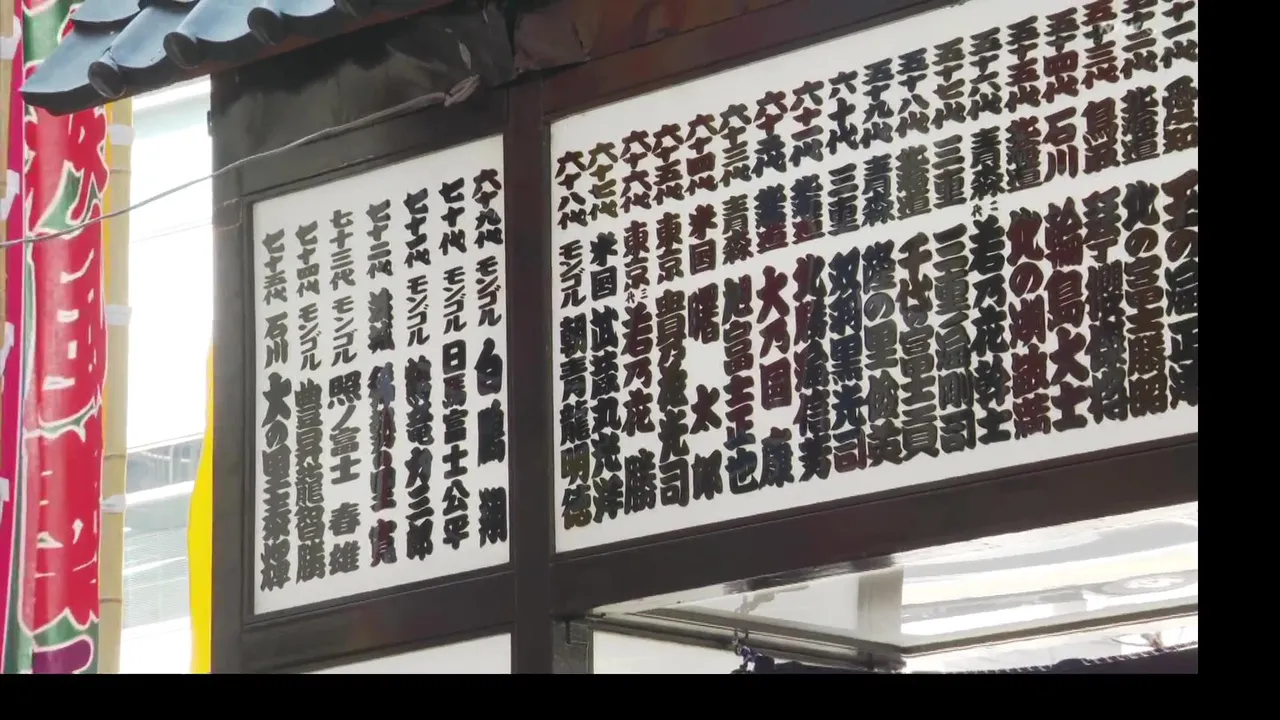 十一代 愛知 玉の海正洋
五十二代 北海道 北の富士勝昭
五十三代 鳥取 琴櫻傑将
五十四代 石川 輪島大士
五十五代 北海道 北の湖敏満
五十六代 青森 二代 若乃花幹士
五十七代 三重 三重ノ海剛司
五十八代 北海道 千代の富士貢
五十九代 青森 隆の里俊英
六十代 三重 双羽黒光司
六十一代 北海道 北勝海信芳
六十二代 北海道 大乃国 康
六十三代 青森 旭富士正也
六十四代 米国 曙 太郎
六十五代 東京 貴乃花光司
六十六代 東京 三代 若乃花 勝
六十七代 米国 武蔵丸光洋
六十八代 モンゴル 朝青龍明徳
六十九代 モンゴル 白鵬 翔
七十代 モンゴル 日馬富士公平
七十一代 モンゴル 鶴竜力三郎
七十二代 茨城 稀勢の里 寛
七十三代 モンゴル 照ノ富士 春雄
七十四代 モンゴル 豊昇龍智勝
七十五代 石川 大の里泰輝